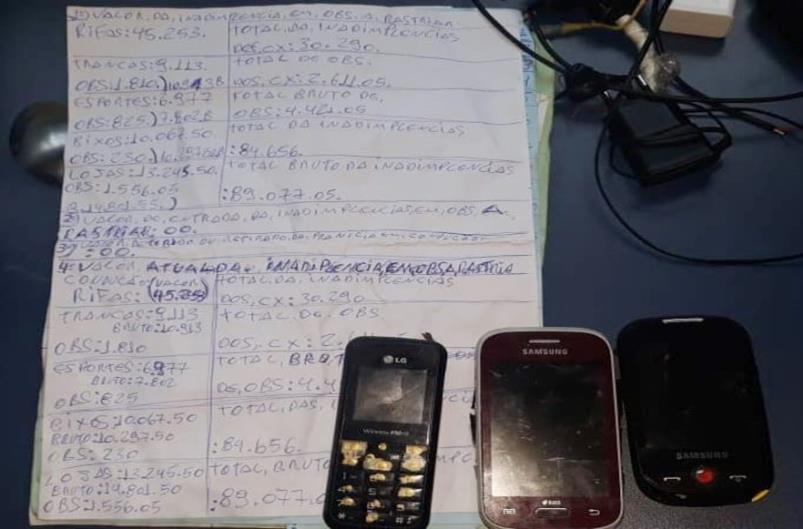 VALOR, DA, INADIMPLENCIA, EM, OBS, A, RASTRIAR
RIFAS: 45.253. TOTAL, DA, INADIMPLENCIAS
DOS, CX: 30.290.
TRANCAS: 9.113 TOTAL DE OBS.
OBS: 1.810.) DOS, CX: 2.611.05.
ESPORTES: 6.977 TOTAL BRUTO DE,
OBS: 825.) 7.802 B OBS: 4.421.05
BIXOS: 10.067.50 TOTAL DA INADIMPLENCIAS
OBS: 230.) :84.656.
LOJAS: 13.245.50. TOTAL BRUTO DA INADIMPLENCIAS
OBS: 1.556.05 :89.077.05.
VALOR, DE, ENTRADA, DA, INADIMPLENCIAS, EM, OBS, A,
RASTRIAR: 00.
: 00.
4: VALOR, ATUAL DA INADIPLENCIA, EM, OBS A, RASTRIA
TOTAL, DA, INADIMPLENCIAS
RIFAS: DOS, CX: 30.290
TRANCAS: 9.113 TOTAL, DE, OBS
BRUTO: 10.913
OBS: 1.810 DOS, CX: 2.
ESPORTES: 6.977 TOTAL, BRUT
BRUTO: 7.802 DE, OBS: 4.4
OBS: 825
BIXOS: 10.067.50 TOTAL, DAS, I
BRUTO: 10.297.50
OBS: 230 :84.656.
LOJAS: 13.245.50 TOTAL, BRUTO
BRUTO: 14.801.50
OBS: 1.556.05 :89.077.0
LG
SAMSUNG
DUOS
SAMSUNG